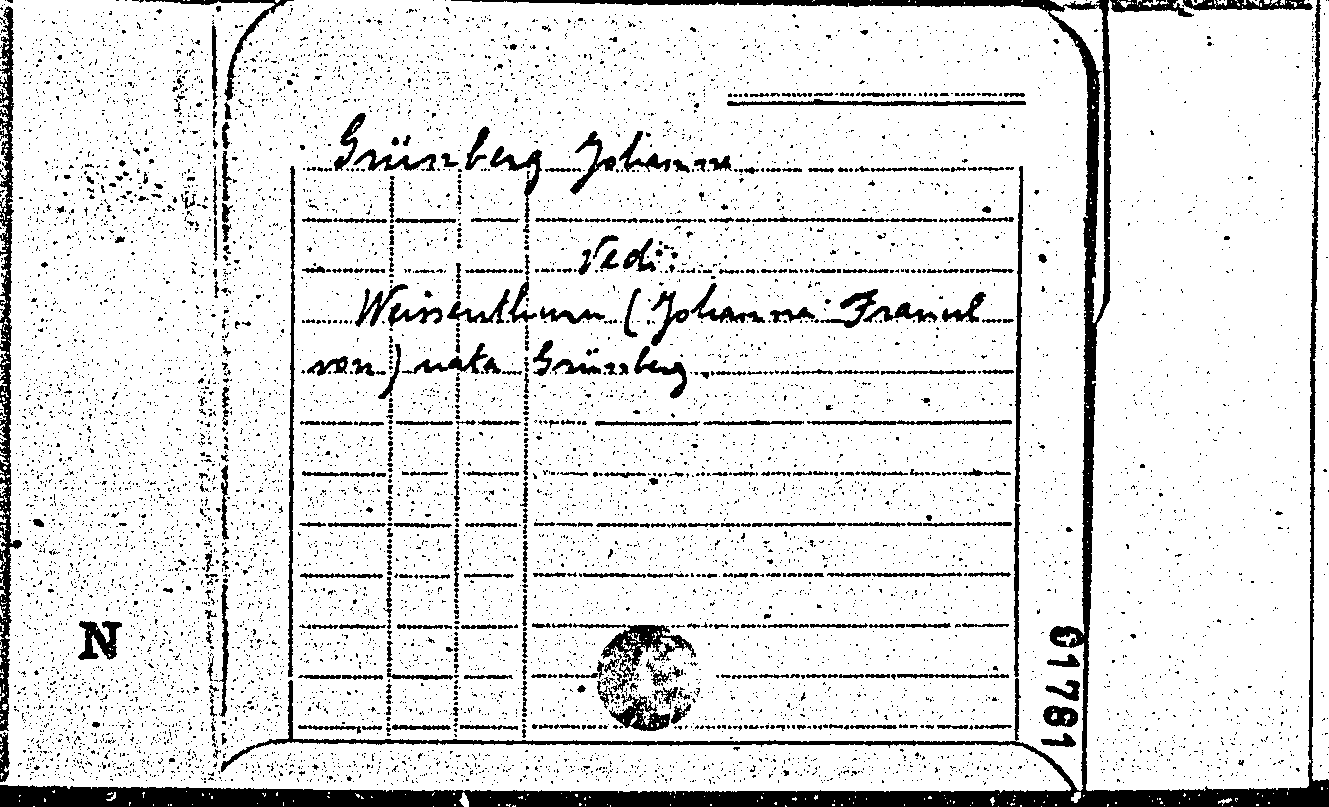 Grünberg Johanna
Vedi:
Weissenthurn (Johanna Franul
von) nata Grünberg.
N
01781